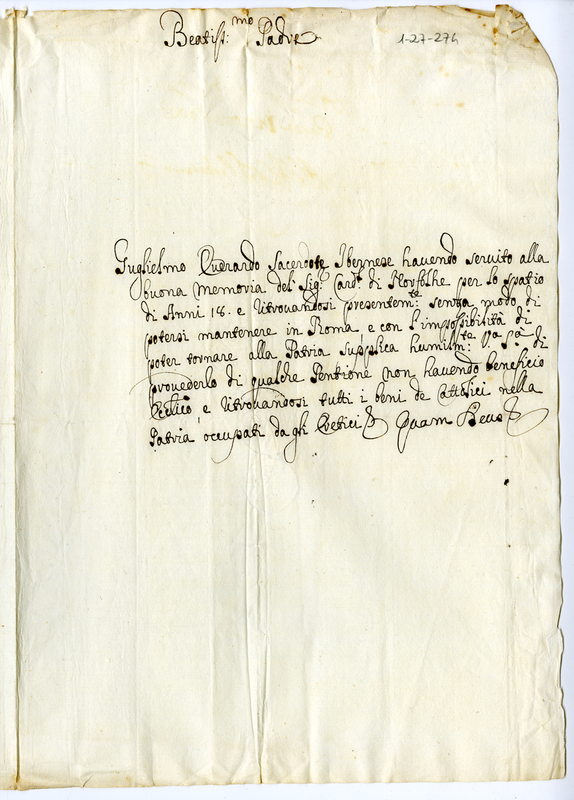 Beatiss:mo Padre
1-27-274
Guglielmo Everardo Sacerdote Ibernese havendo servito alla
buona memoria del Sig: Card: di Norfolche per lo spatio
di Anni 18. e ritrovandosi presentem:te senza modo di
potersi mantenere in Roma, e con l'impossibilità di
poter tornare alla Patria supplica humilm:te V.a S.tà di
provederlo di qualche Pentione non havendo beneficio
Ecclico, e ritrovandosi tutti i beni de Cattolici nella
Patria occupati dagli Eretici Quam Deus